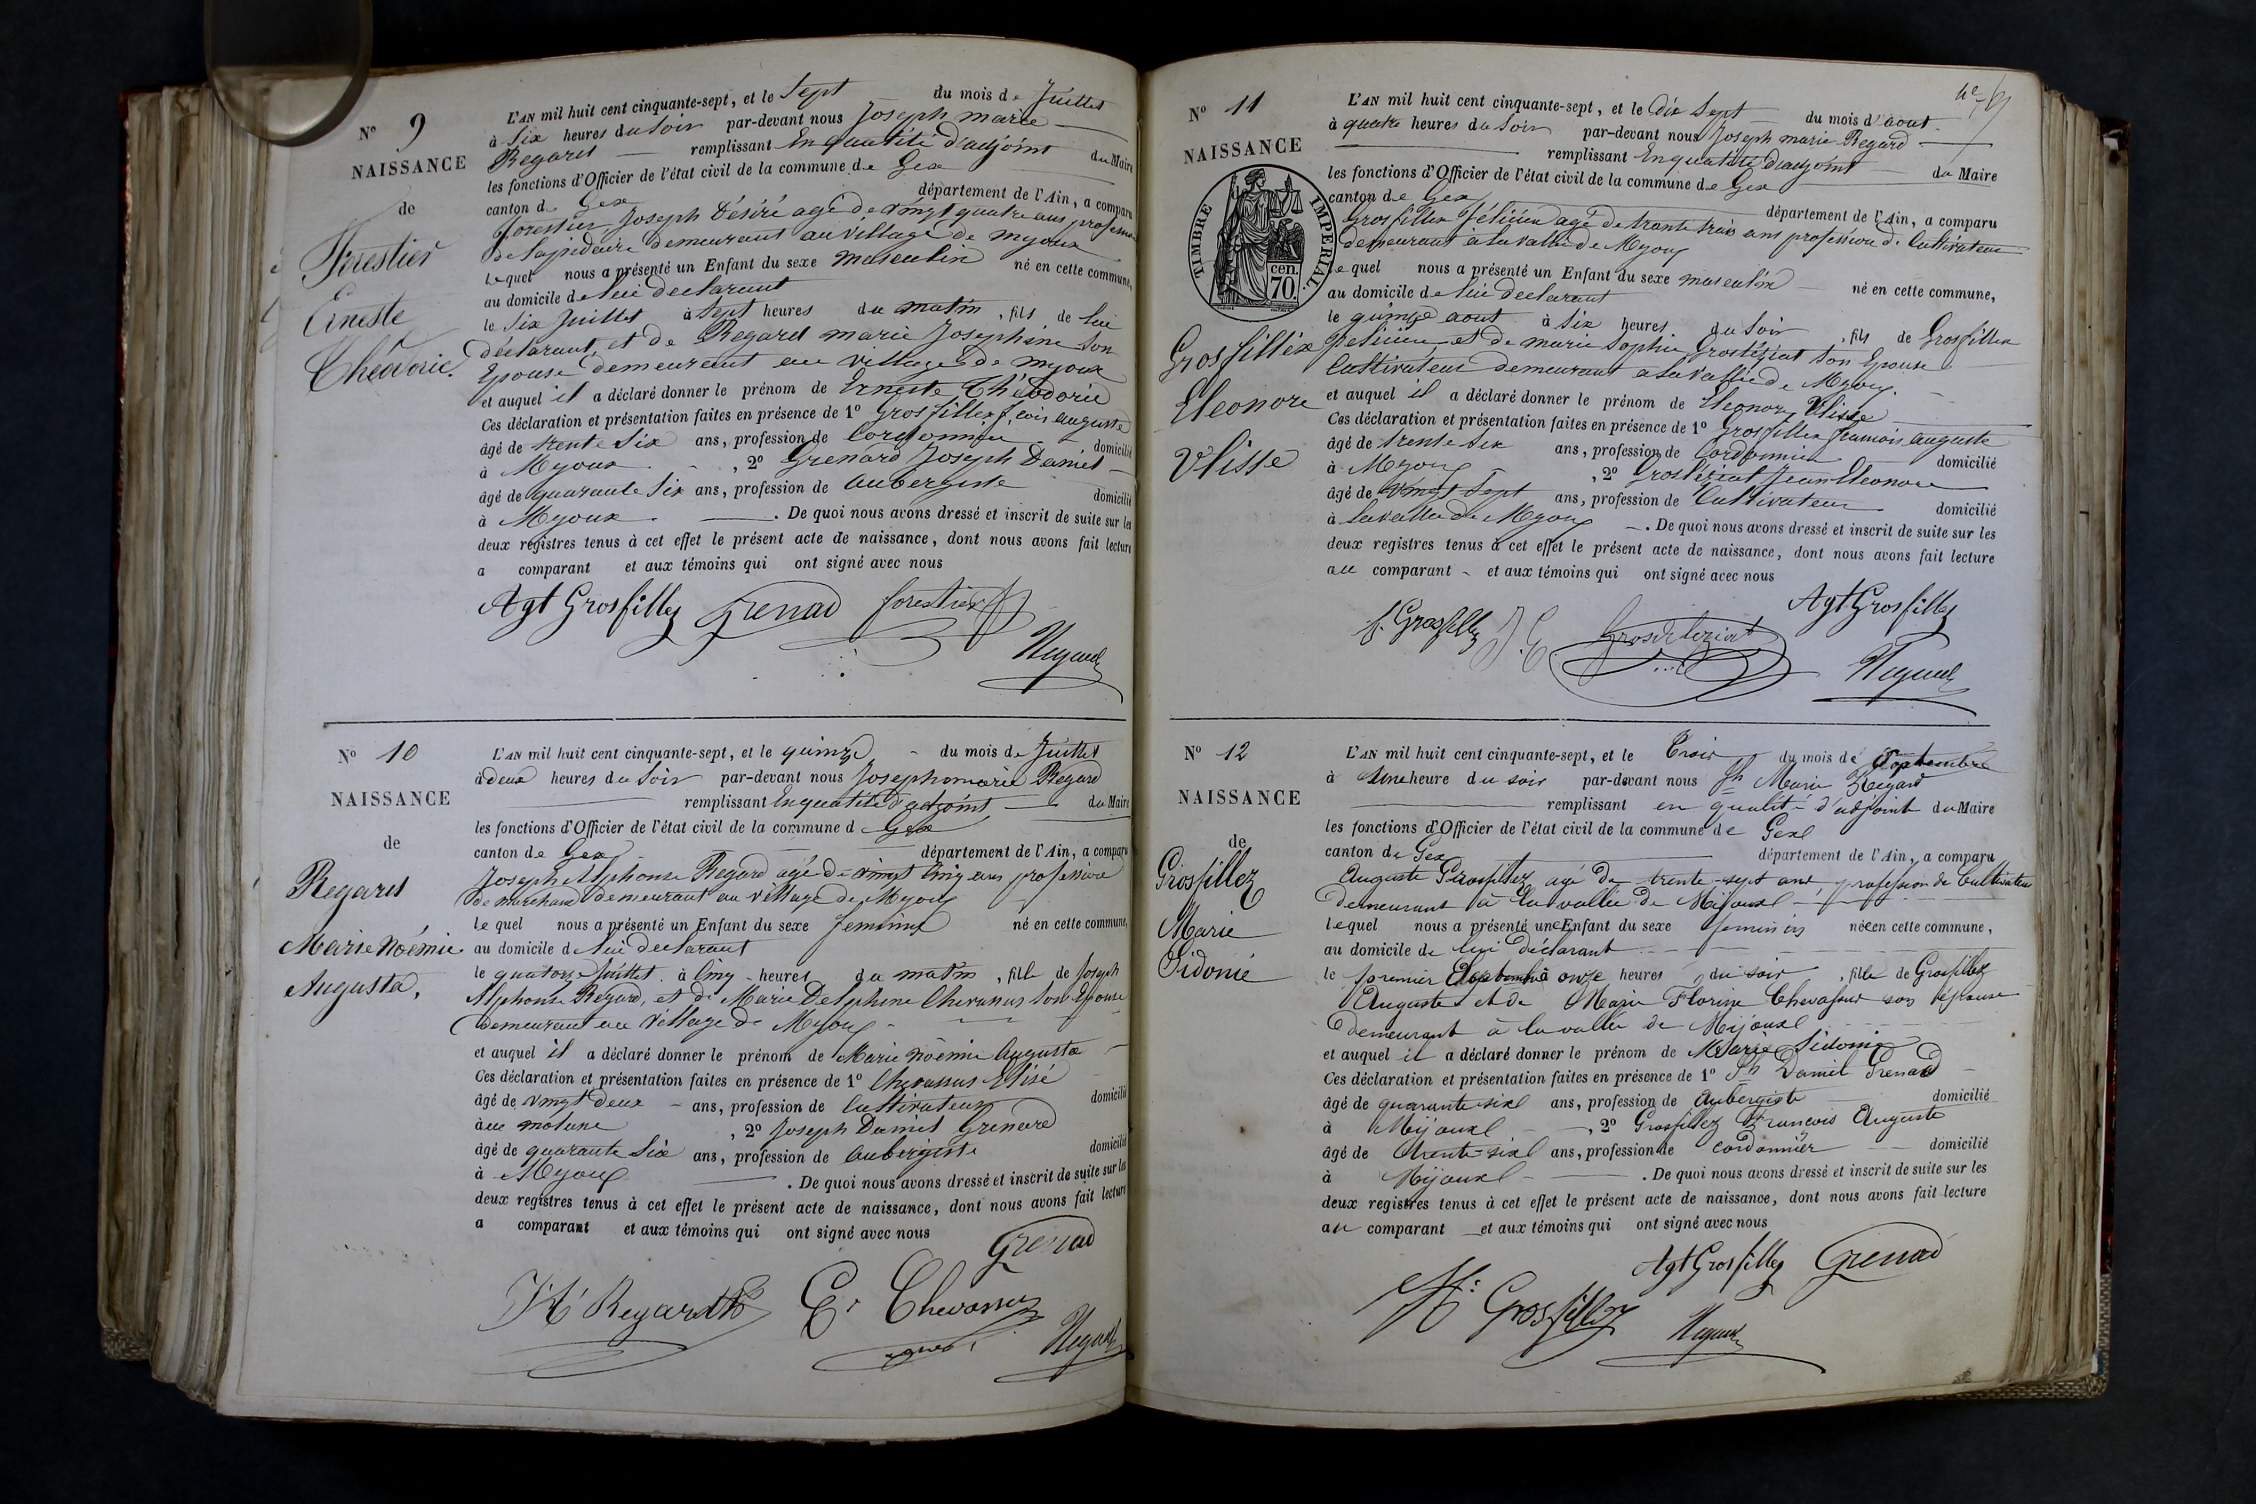 N° 9
NAISSANCE
de
Forestier
Erneste
Théodorie.
L'AN mil huit cent cinquante-sept, et le Sept du mois de Juillet
à Six heures du Soir par-devant nous Joseph marie
Regard remplissant En qualité d'adjoint du Maire
les fonctions d'Officier de l'état civil de la commune de Gex
canton de Gex département de l'Ain, a comparu
forestier Joseph Désiré agé de vingt quatre ans profession
de Lapidaire demeurant au village de myoux
Lequel nous a présenté un Enfant du sexe masculin né en cette commune,
au domicile de lui declarant
le Six Juillet à Sept heures du matin, fils de lui
déclarant, et de Regard marie Josephine Son
Epouse demeurant au village de myoux
et auquel il a déclaré donner le prénom de Erneste Théodorie
Ces déclaration et présentation faites en présence de 1° Grosfillex f.cois auguste
âgé de trente Six ans, profession de Cordonnier domicilié
à Myoux, 2° Grenard Joseph Daniel
âgé de quarante Six ans, profession de aubergiste domicilié
à Myoux. De quoi nous avons dressé et inscrit de suite sur les
deux registres tenus à cet effet le présent acte de naissance, dont nous avons fait lecture
a comparant et aux témoins qui ont signé avec nous
Agt Grosfillez Grenad forestier
Regard
N° 10
NAISSANCE
de
Regard
Marie Noémie
Augusta,
L'AN mil huit cent cinquante-sept, et le quinze du mois de Juillet
à deux heures du Soir par-devant nous Joseph marie Regard
remplissant En qualité d'adjoint du Maire
les fonctions d'Officier de l'état civil de la commune d Gex
canton de Gex département de l'Ain, a comparu
Joseph Alphonse Regard agé de vingt Cinq ans profession
de marchand demeurant au village de Myoux
Le quel nous a présenté un Enfant du sexe feminin né en cette commune,
au domicile de lui declarant
le quatorze Juillet à Cinq heures du matin, fille de Joseph
Alphonse Regard, et de Marie Delphine Chevassus Son Epouse
demeurant au village de Myoux
et auquel il a déclaré donner le prénom de Marie Noémie Augusta
Ces déclaration et présentation faites en présence de 1° Chevassus Elisé
âgé de vingt deux ans, profession de Cultivateur domicilié
à , 2° Joseph Daniel Grenard
âgé de quarante Six ans, profession de aubergiste domicilié
à Myoux. De quoi nous avons dressé et inscrit de suite sur les
deux registres tenus à cet effet le présent acte de naissance, dont nous avons fait lecture
a comparant et aux témoins qui ont signé avec nous
Grenad
Regard E. Chevassus
Regard
N° 11
NAISSANCE
TIMBRE IMPERIAL
cen.
70.
Grosfillex
Eleonore
Ulisse
L'AN mil huit cent cinquante-sept, et le dix Sept du mois d'aout
à quatre heures du Soir par-devant nous Joseph marie Regard
remplissant En qualité d'adjoint du Maire
les fonctions d'Officier de l'état civil de la commune de Gex
canton de Gex département de l'Ain, a comparu
Grosfillex félicien agé de trante trois ans profession de Cultivateur
demeurant à la vallée de Myoux
Le quel nous a présenté un Enfant du sexe masculin né en cette commune,
au domicile de lui declarant
le quinze aout à Six heures du Soir, fils de Grosfillex
felicien et de marie Sophie Grosléziat Son Epouse
Cultivateur demeurant à la vallée de Myoux.
et auquel il a déclaré donner le prénom de Eleonore Ulisse
Ces déclaration et présentation faites en présence de 1° Grosfillex francois auguste
âgé de trente Six ans, profession de Cordonnier domicilié
à Myoux, 2° Groslézial Jean Eleonore
âgé de vingt Sept ans, profession de Cultivateur domicilié
à la vallée de Myoux. De quoi nous avons dressé et inscrit de suite sur les
deux registres tenus à cet effet le présent acte de naissance, dont nous avons fait lecture
au comparant et aux témoins qui ont signé avec nous
Agt Grosfillez
f. Grosfillez J. E.
Regard
N° 12
NAISSANCE
de
Grosfillez
Marie
Sidonie
L'AN mil huit cent cinquante-sept, et le trois du mois de Septembre
à Une heure du soir par-devant nous Jh Marie Regard
remplissant en qualité d'adjoint du Maire
les fonctions d'Officier de l'état civil de la commune de Gex
canton de Gex département de l'Ain, a comparu
Auguste Grosfillez agé de trente-sept ans, profession de Cultivateur
demeurant à la vallée de Mijoux
Lequel nous a présenté une Enfant du sexe feminin née en cette commune,
au domicile de lui déclarant
le premier Septembre à onze heures du soir, fille de Grosfillez
Auguste et de Marie Florine Chevassus son épouse
demeurant à la vallée de Mijoux
et auquel il a déclaré donner le prénom de Marie Sidonie
Ces déclaration et présentation faites en présence de 1° Jh Daniel Grenard
âgé de quarante six ans, profession de Aubergiste domicilié
à Mijoux, 2° Grosfillez Francois Auguste
âgé de trente-six ans, profession de cordonnier domicilié
à Mijoux. De quoi nous avons dressé et inscrit de suite sur les
deux registres tenus à cet effet le présent acte de naissance, dont nous avons fait lecture
au comparant et aux témoins qui ont signé avec nous
Agt Grosfillez Grenad
Grosfillez Regard